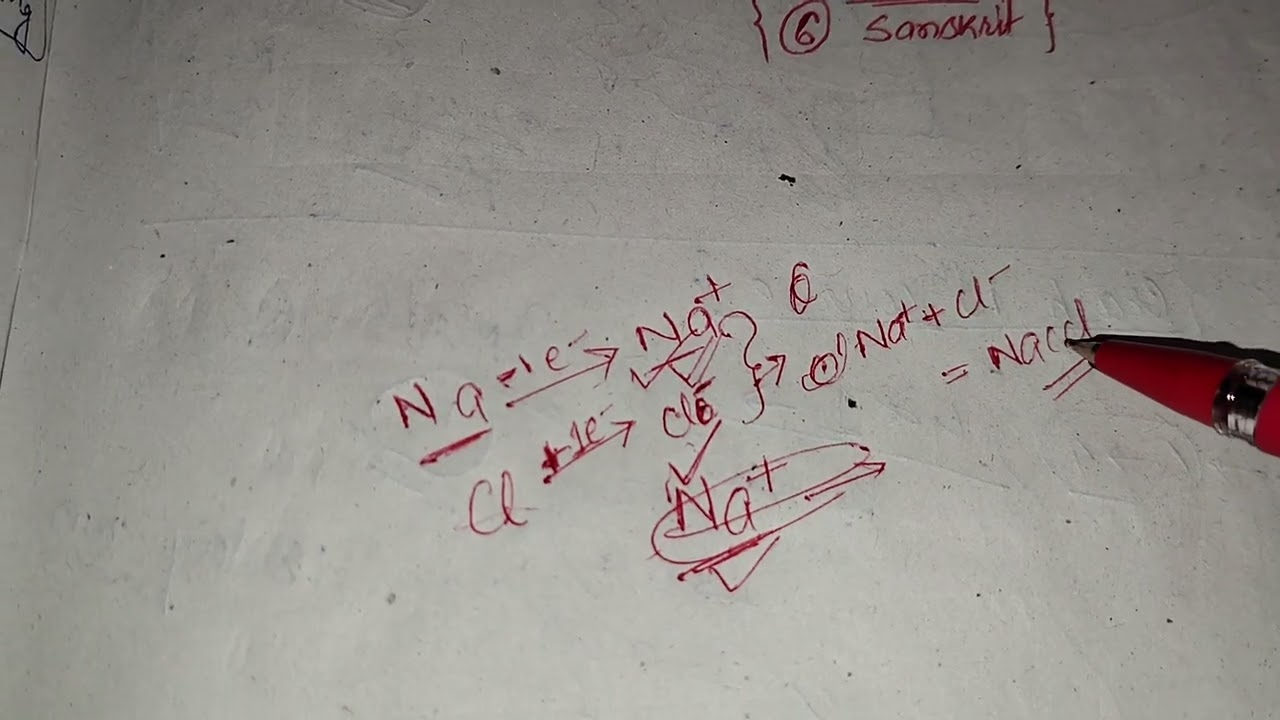 { ⑥ Sanskrit }
Na -1e⁻ → Na⁺
Cl +1e⁻ → Cl⁻
} → Na⁺ + Cl⁻
= NaCl
Na⁺